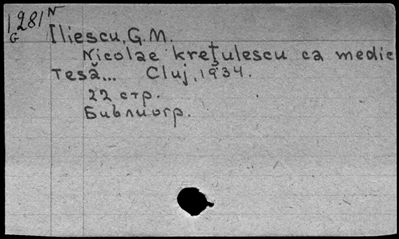 1281 N
G
Iliescu, G.M.
Nicolae Krețulescu ca medic
Tesă... Cluj, 1934.
22 стр.
Библиогр.